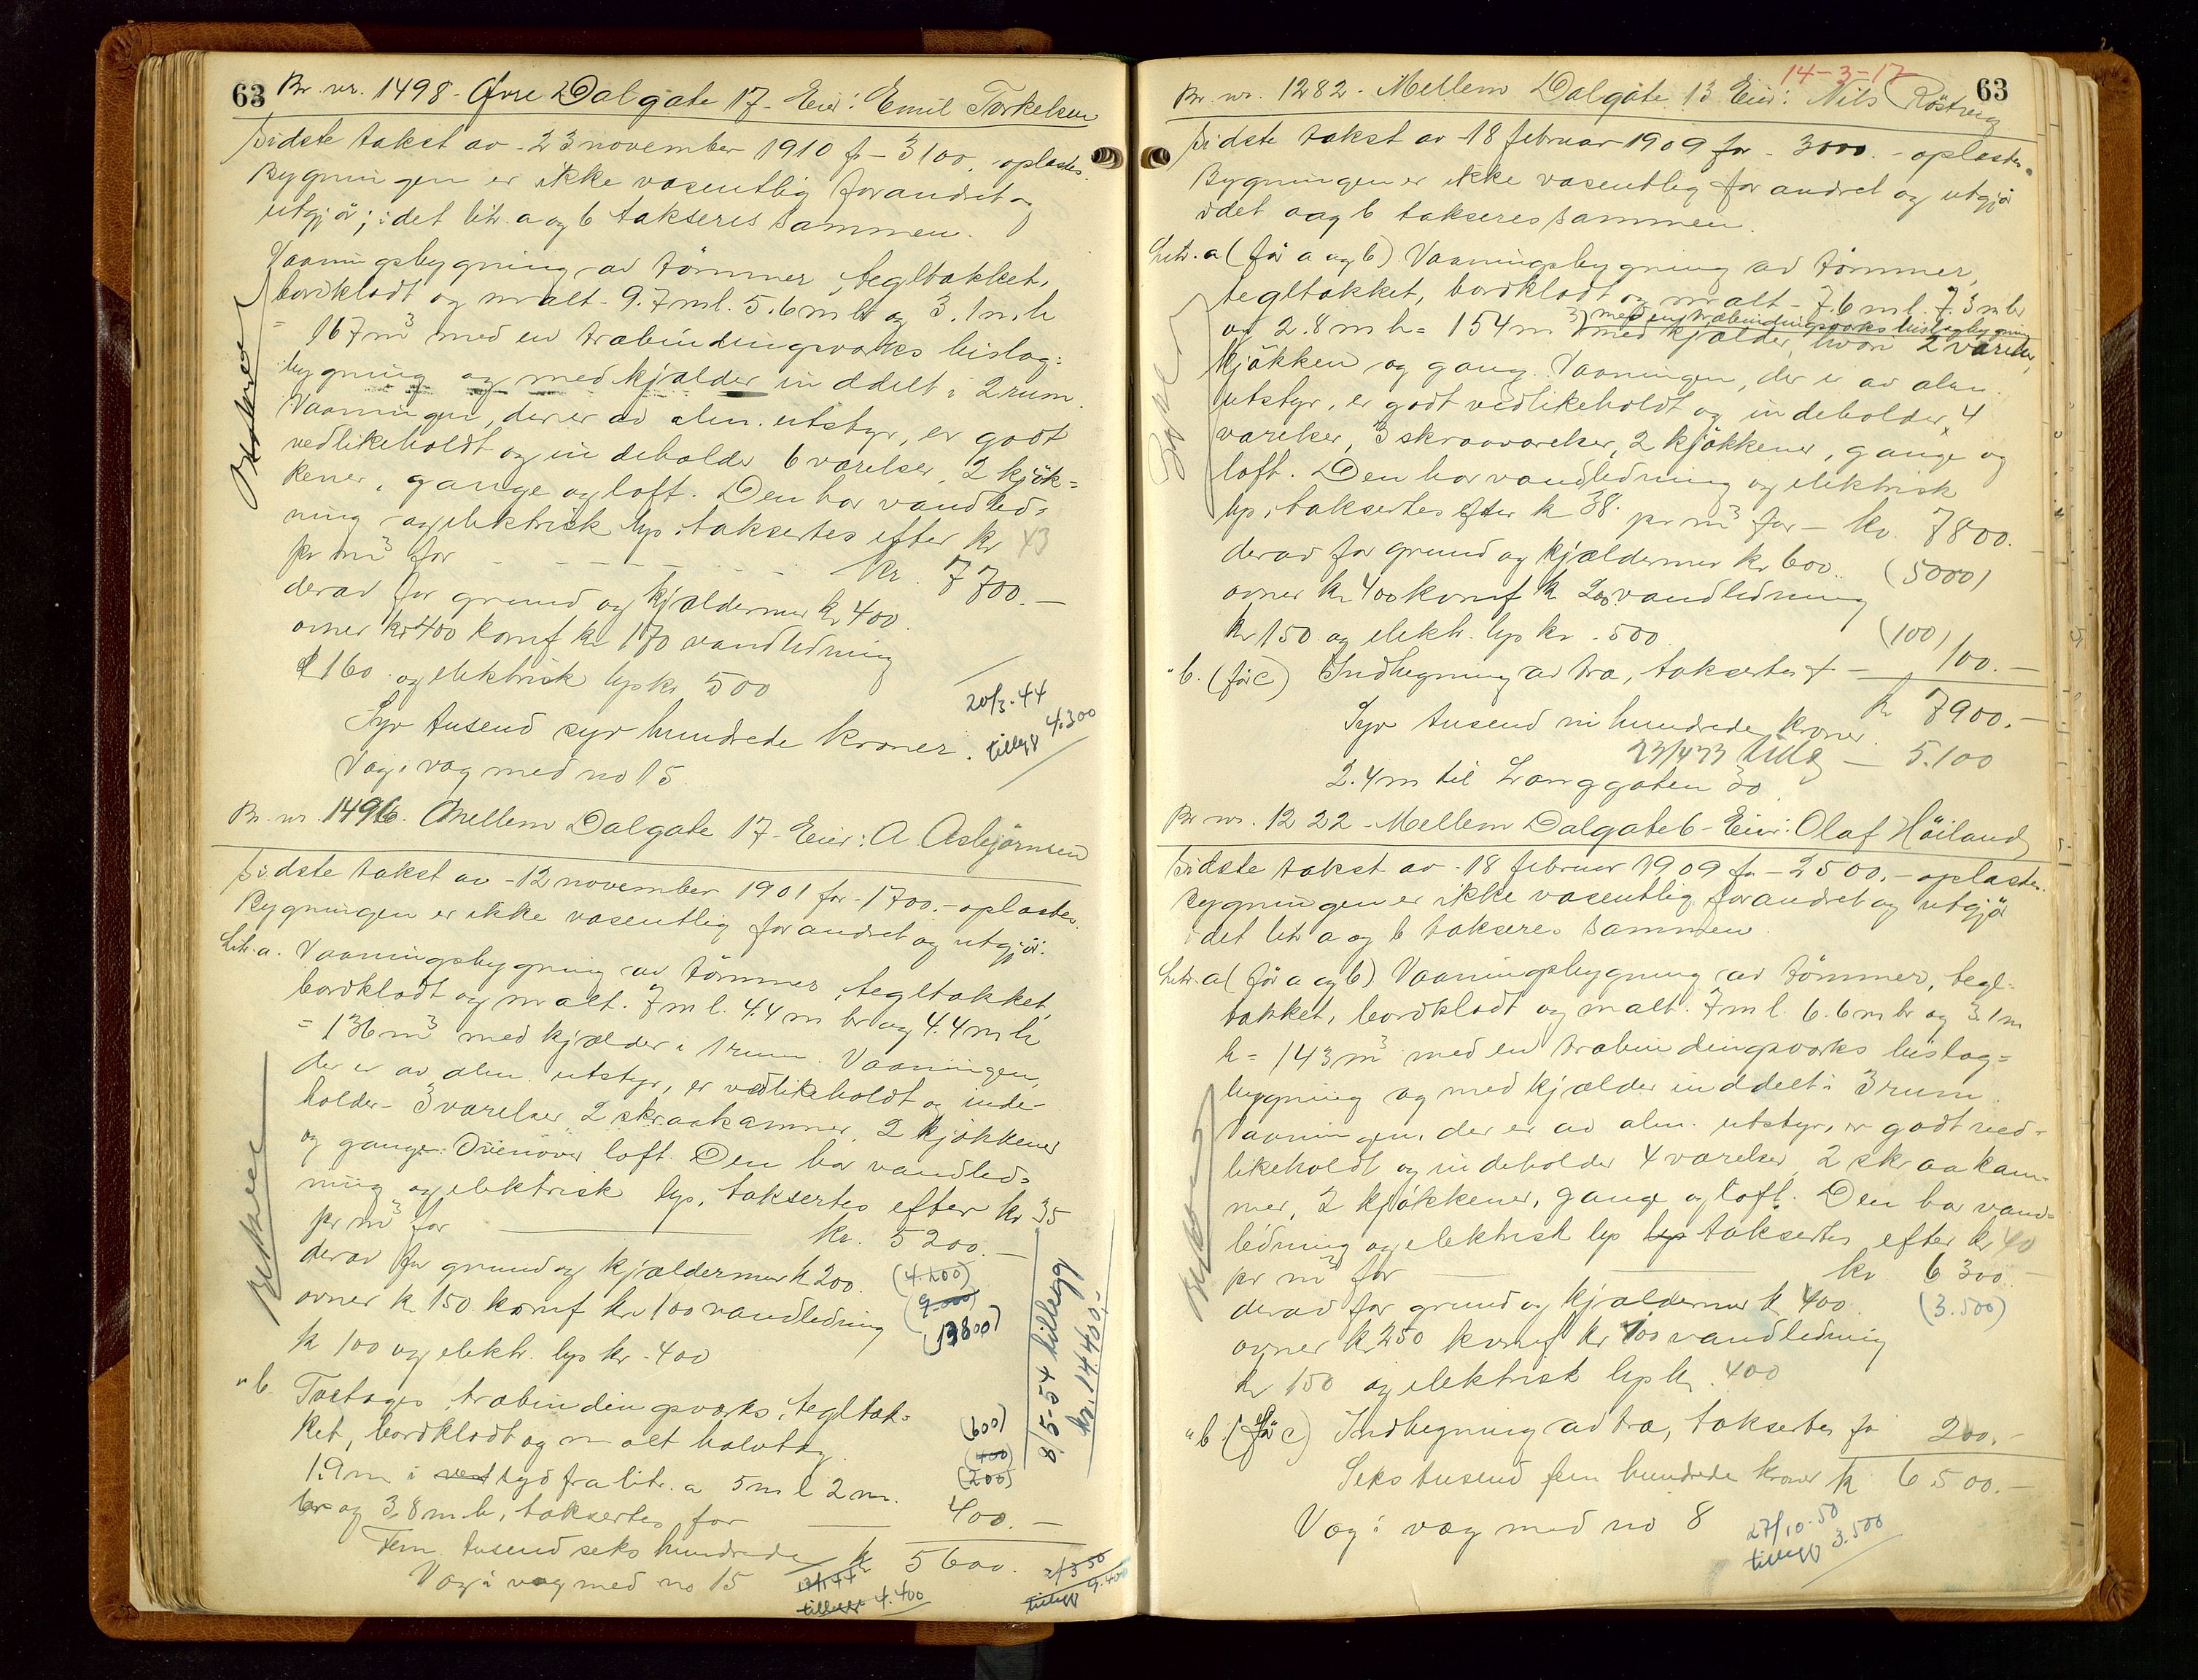 63
Br. nr. 1498 - Øvre Dalgate 17 - Eier: Emil Torkelsen
Sidste takst av - 23 november 1910 fr - 3100. oplæstes.
Bygningen er ikke væsentlig forandret og
utgjør; idet litr. a og b takseres sammen.
Vaaningsbygning av tømmer, tegltækket,
bordklædt og malt - 9.7 m l. 5.6 m br og 3.1 m h
= 167 m³ med en træbindingsverks bislag=
bygning og med kjælder inddelt i 2 rum.
Vaaningen, der er av alm. utstyr, er godt
vedlikeholdt og indeholder 6 værelser, 2 kjøk=
kener, gange og loft. Den har vandled=
ning og elektrisk lys, taksertes efter kr 43
pr m³ for - - - - - - kr. 7700.—
derav for grund og kjældermur kr 400.
ovner kr 400 komf kr 170 vandledning
160 og elektrisk lys kr 500
Syv tusend syv hundrede kroner.
20/3-44
tillegg 4.300
Væg i væg med no 15
Br. nr. 1496. Mellem Dalgate 17 - Eier: A Asbjörnsen
Sidste takst av - 12 november 1901 for - 1700.- oplæstes.
Bygningen er ikke væsentlig forandret og utgjør:
Litr. a. Vaaningsbygning av tømmer, tegltækket,
bordklædt og malt. 7 m l. 4.4 m br og 4.4 m h
= 136 m³ med kjælder i 1 rum. Vaaningen,
der er av alm. utstyr, er vedlikeholdt og inde-
holder - 3 værelser, 2 skraakammer, 2 kjøkkener
og gange. Ovenover loft. Den har vandled=
ning og elektrisk lys, taksertes efter kr 35
pr m³ for kr. 5200.—
derav for grund og kjældermur kr 200. (4.200)
ovner kr 150. komf kr 100 vandledning (9.000)
kr 100 og elektr. lys kr. 400 (13800)
8/5-54 tillegg
kr. 14.400,-
" b. Toetages, træbindingsverks, tegltæk=
ket, bordklædt og malt halvtag (600)
1.9 m i vest syd fra litr. a 5 m l 2 m. (400) (200)
br og 3.8 m h, taksertes for 400.—
Fem tusend seks hundrede kr 5600.
Væg i væg med no 15
tillegg 4.400
2/3 50
tillegg 9.400
63
14-3-17
Br. nr. 1282 - Mellem Dalgate 13 Eier: Nils Röstvig
Sidste takst av 18 februar 1909 for - 3000.- oplæstes.
Bygningen er ikke væsentlig forandret og utgjør
idet a og b takseres sammen.
Litr. a (før a og b) Vaaningsbygning av tømmer,
tegltækket, bordklædt og malt - 7.6 m l. 7.3 m br
og 2.8 m h = 154 m³ med en træbindingsverks bislagbygning
med kjælder, hvori 2 værelser,
kjøkken og gang. Vaaningen, der er av alm.
utstyr, er godt vedlikeholdt og indeholder 4
værelser, 3 skraaværelser, 2 kjøkkener, gange og
loft. Den har vandledning og elektrisk
lys, taksertes efter kr 38 pr m³ for — kr. 7800.
derav for grund og kjældermur kr 600. (5000)
ovner kr 400 komf kr 200. vandledning
kr 150 og elektr. lys kr. 500. (100)
" b. (før c) Indhegning av træ, taksertes f — 100.—
kr 7900.—
Syv tusend ni hundrede kroner.
5.100
2.4 m til Langgaten 30
Br nr. 1222 - Mellem Dalgate 6 - Eier: Olaf Höiland
Sidste takst av - 18 februar 1909 for - 2500.- oplæstes.
Bygningen er ikke væsentlig forandret og utgjør
idet litr a og b takseres sammen.
Litr. a (før a og b) Vaaningsbygning av tømmer, tegl=
tækket, bordklædt og malt. 7 m l. 6.6 m br og 3.1 m
h = 143 m³ med en træbindingsverks bislag=
bygning og med kjælder inddelt i 3 rum.
Vaaningen, der er av alm. utstyr, er godt ved=
likeholdt og indeholder 4 værelser, 2 skraakam=
mer, 2 kjøkkener, gange og loft. Den har vand=
ledning og elektrisk lys lys taksertes efter kr 40
pr m³ for kr 6300.—
derav for grund og kjældermur kr 400. (3.500)
ovner kr 250 komf kr 100 vandledning
kr 150 og elektrisk lys kr. 400
" b. (før c) Indhegning av træ, taksertes for 200.—
Seks tusend fem hundrede kroner kr 6500.—
Væg i væg med no 8
27/10-50
tillegg 3.500